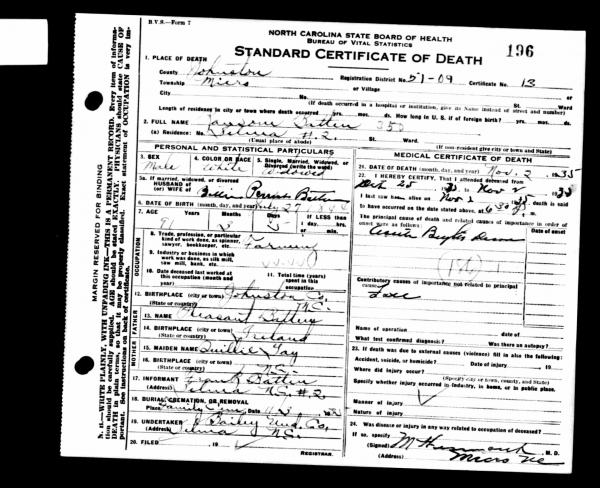 B.V.S.—Form 7
NORTH CAROLINA STATE BOARD OF HEALTH
BUREAU OF VITAL STATISTICS
196
STANDARD CERTIFICATE OF DEATH
1. PLACE OF DEATH
County Johnston Registration District No. 51-09 Certificate No. 13
Township Micro or Village
City No. St. Ward
(If death occurred in a hospital or institution, give its Name instead of street and number)
Length of residence in city or town where death occurred yrs. mos. ds. How long in U. S. if of foreign birth? yrs. mos. ds.
2. FULL NAME Ransome Batten 350
(a) Residence: No. Selma #2. St. Ward
(Usual place of abode) (If non-resident give city or town and State)
PERSONAL AND STATISTICAL PARTICULARS
3. SEX Male
4. COLOR OR RACE White
5. Single, Married, Widowed, or Divorced (write the word) Widowed
5a. If married, widowed, or divorced
HUSBAND of
(or) WIFE of Batten
6. DATE OF BIRTH (month, day, and year)
7. AGE 81 3 3 If LESS than
1 day, hrs.
or min.
OCCUPATION
8. Trade, profession, or particular kind of work done, as spinner, sawyer, bookkeeper, etc. Farming
9. Industry or business in which work was done, as silk mill, saw mill, bank, etc.
10. Date deceased last worked at this occupation (month and year)
11. Total time (years) spent in this occupation
12. BIRTHPLACE (city or town) Johnston Co.
(State or country) N.C.
FATHER
13. NAME Pleasant Batten
14. BIRTHPLACE (city or town) Ireland
(State or country)
MOTHER
15. MAIDEN NAME Gay
16. BIRTHPLACE (city or town)
(State or country) N.C.
17. INFORMANT Batten
(Address) Selma N.C. #2
18. BURIAL, CREMATION, OR REMOVAL
Place Family Cem. 11-3 1935
19. UNDERTAKER Bailey Und. Co.
(Address) Selma N.C.
20. FILED 19
REGISTRAR.
MEDICAL CERTIFICATE OF DEATH
21. DATE OF DEATH (month, day, and year) Nov. 2 1935
22. I HEREBY CERTIFY, That I attended deceased from
Oct 25 1935 to Nov 2 1935
I last saw h alive on Nov 2 1935 death is said
to have occurred on the date stated above, at 6:30 m.
The principal cause of death and related causes of importance in order of onset were as follows: Date of onset
Contributory causes of importance not related to principal cause:
Name of operation Date of
What test confirmed diagnosis? Was there an autopsy?
23. If death was due to external causes (violence) fill in also the following:
Accident, suicide, or homicide? Date of injury 19
Where did injury occur?
(Specify city or town, county, and State)
Specify whether injury occurred in industry, in home, or in public place.
Manner of injury
Nature of injury
24. Was disease or injury in any way related to occupation of deceased?
If so, specify
(Signed) M. D.
(Address) Micro NC
MARGIN RESERVED FOR BINDING
N. B.—WRITE PLAINLY, WITH UNFADING INK—THIS IS A PERMANENT RECORD. Every item of information should be carefully supplied. AGE should be stated EXACTLY. PHYSICIANS should state CAUSE OF DEATH in plain terms, so that it may be properly classified. Exact statement of OCCUPATION is very important. See instructions on back of certificate.